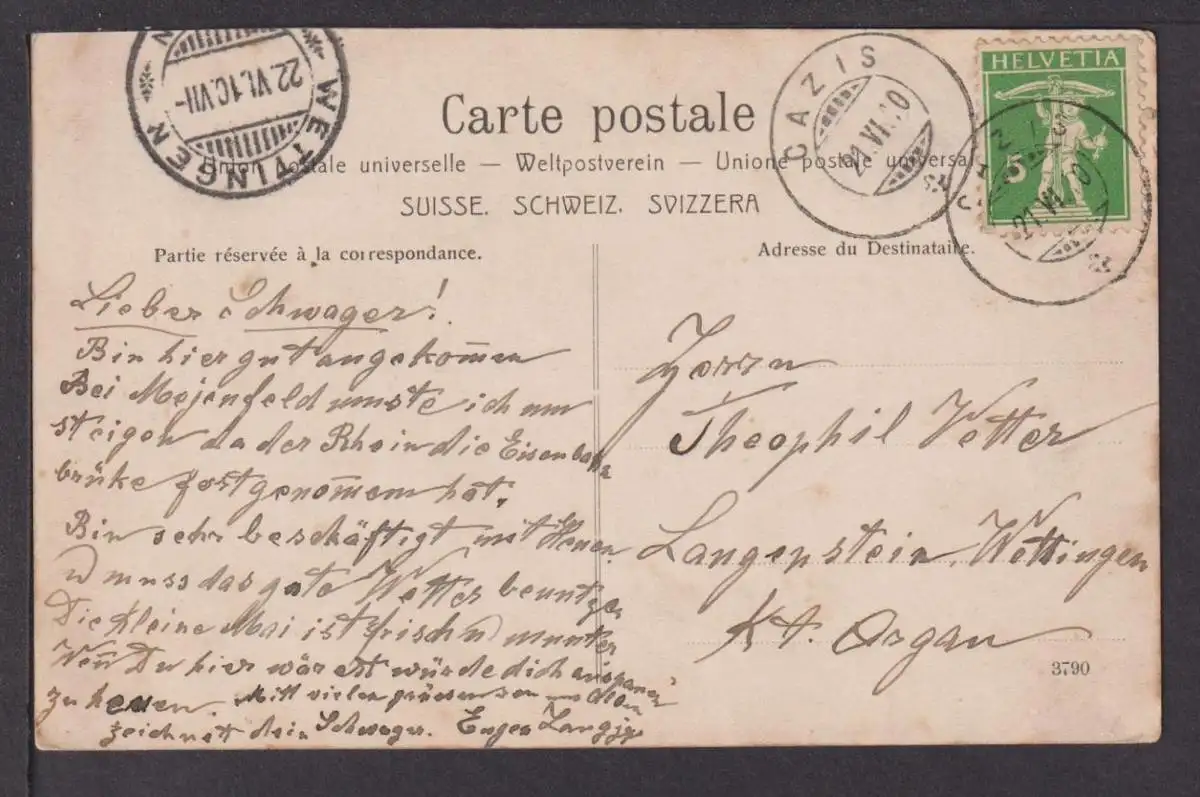 WETTINGEN
22.VI.10.VII-
CAZIS
21.VI.10
HELVETIA
5
CAZIS
21.VI.10
Carte postale
Union postale universelle — Weltpostverein — Unione postale universale
SUISSE. SCHWEIZ. SVIZZERA
Partie réservée à la correspondance.
Lieber Schwager!
Bin hier gut angekom̄en
Bei Majenfeld umste ich um
steigen da der Rhein die Eisenbahn
brüke fortgenom̄em hat.
Bin sehr beschäftigt mit Heuen
u muss das gute Wetter beuntzen
Die Kleine Mai ist frisch u munter
Wen̄ Du hier wär est würde dich
zu heuen. Mitt vielen grüessen
zeichnet dein Schwager. Eugen
Adresse du Destinataire.
Herrn
Theophil Vetter
Langenstein, Wettingen
Kt. Argau
3790